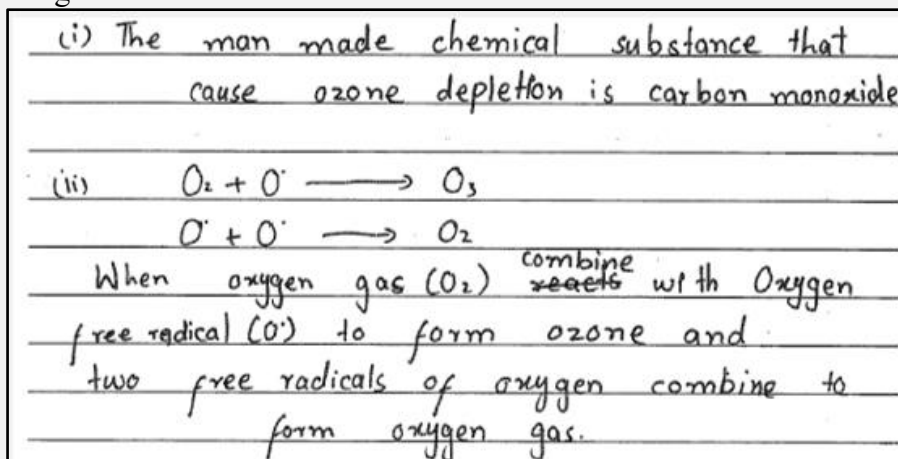 (i) The man made chemical substance that
cause ozone depletion is carbon monoxide
(ii) O₂ + O˙ ⟶ O₃
O˙ + O˙ ⟶ O₂
When oxygen gas (O₂) combine ~~reacts~~ with Oxygen
free radical (O˙) to form ozone and
two free radicals of oxygen combine to
form oxygen gas.